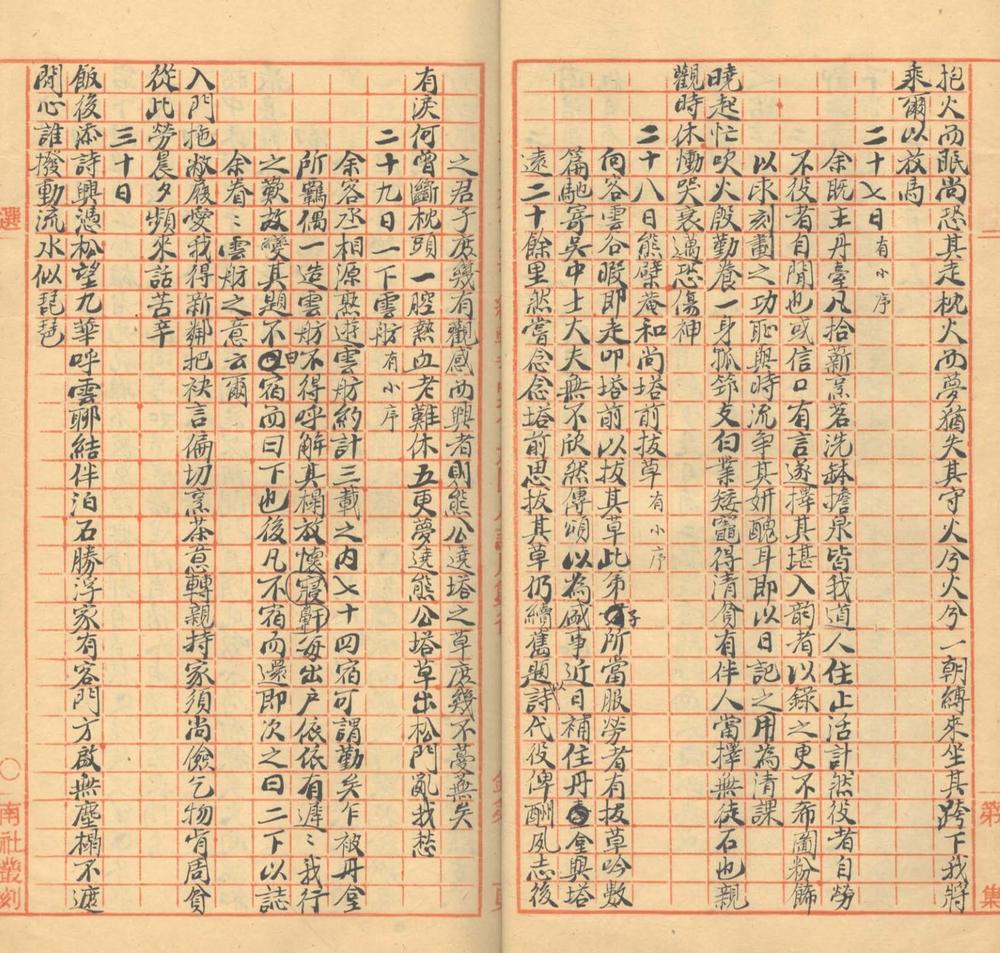 抱火而眠尚恐其走枕火而夢猶失其守火兮火兮一朝縛來坐其跨下我將
乘爾以放馬
二十七日有小序
余既主丹臺凡拾薪烹茗洗缽擔泉皆我道人住止活計然役者自勞
不役者自閒也或信口有言遂擇其堪入韵者以錄之更不希圖粉飾
以求刻劃之功耻與時流爭其妍醜耳即以日記之用為清課
曉起忙吹火殷勤養一身孤筇支白業矮竈得清貧有伴人當擇無徒石也親
觀時休慟哭衰邁恐傷神
二十八日熊檗菴和尚塔前拔草有小序
向客雲谷暇即走叩塔前以拔其草此弟子所當服勞者有拔草吟數
篇馳寄吳中士大夫無不欣然傳頌以為盛事近日補住丹臺與塔
遠二十餘里然嘗念念塔前思拔其草仍續舊題以詩代役俾酬夙志後
之君子庶幾有觀感而興者則熊公遶塔之草庶幾不蔓蕪矣
有淚何曾斷枕頭一腔熱血老難休五更夢遶熊公塔草出松門亂我愁
二十九日一下雲舫有小序
余客丞相源熟遊雲舫約計三載之內七十四宿可謂勤矣乍被丹臺
所羈偶一造雲舫不得呼解其榻放懷寢軒每出戶依依有遲遲我行
之歎故變其題不曰宿而曰下也後凡不宿而還即次之曰二下以誌
余眷眷雲舫之意云爾
入門拖敝屐愛我得新鄰把袂言偏切烹茶意轉親持家須尚儉乞物肯周貧
從此勞晨夕頻來話苦辛
三十日
飯後添詩興憑松望九華呼雲聊結伴泊石勝浮家有客門方啟無塵榻不遮
閒心誰撥動流水似琵琶
選
南社叢刻
第
集